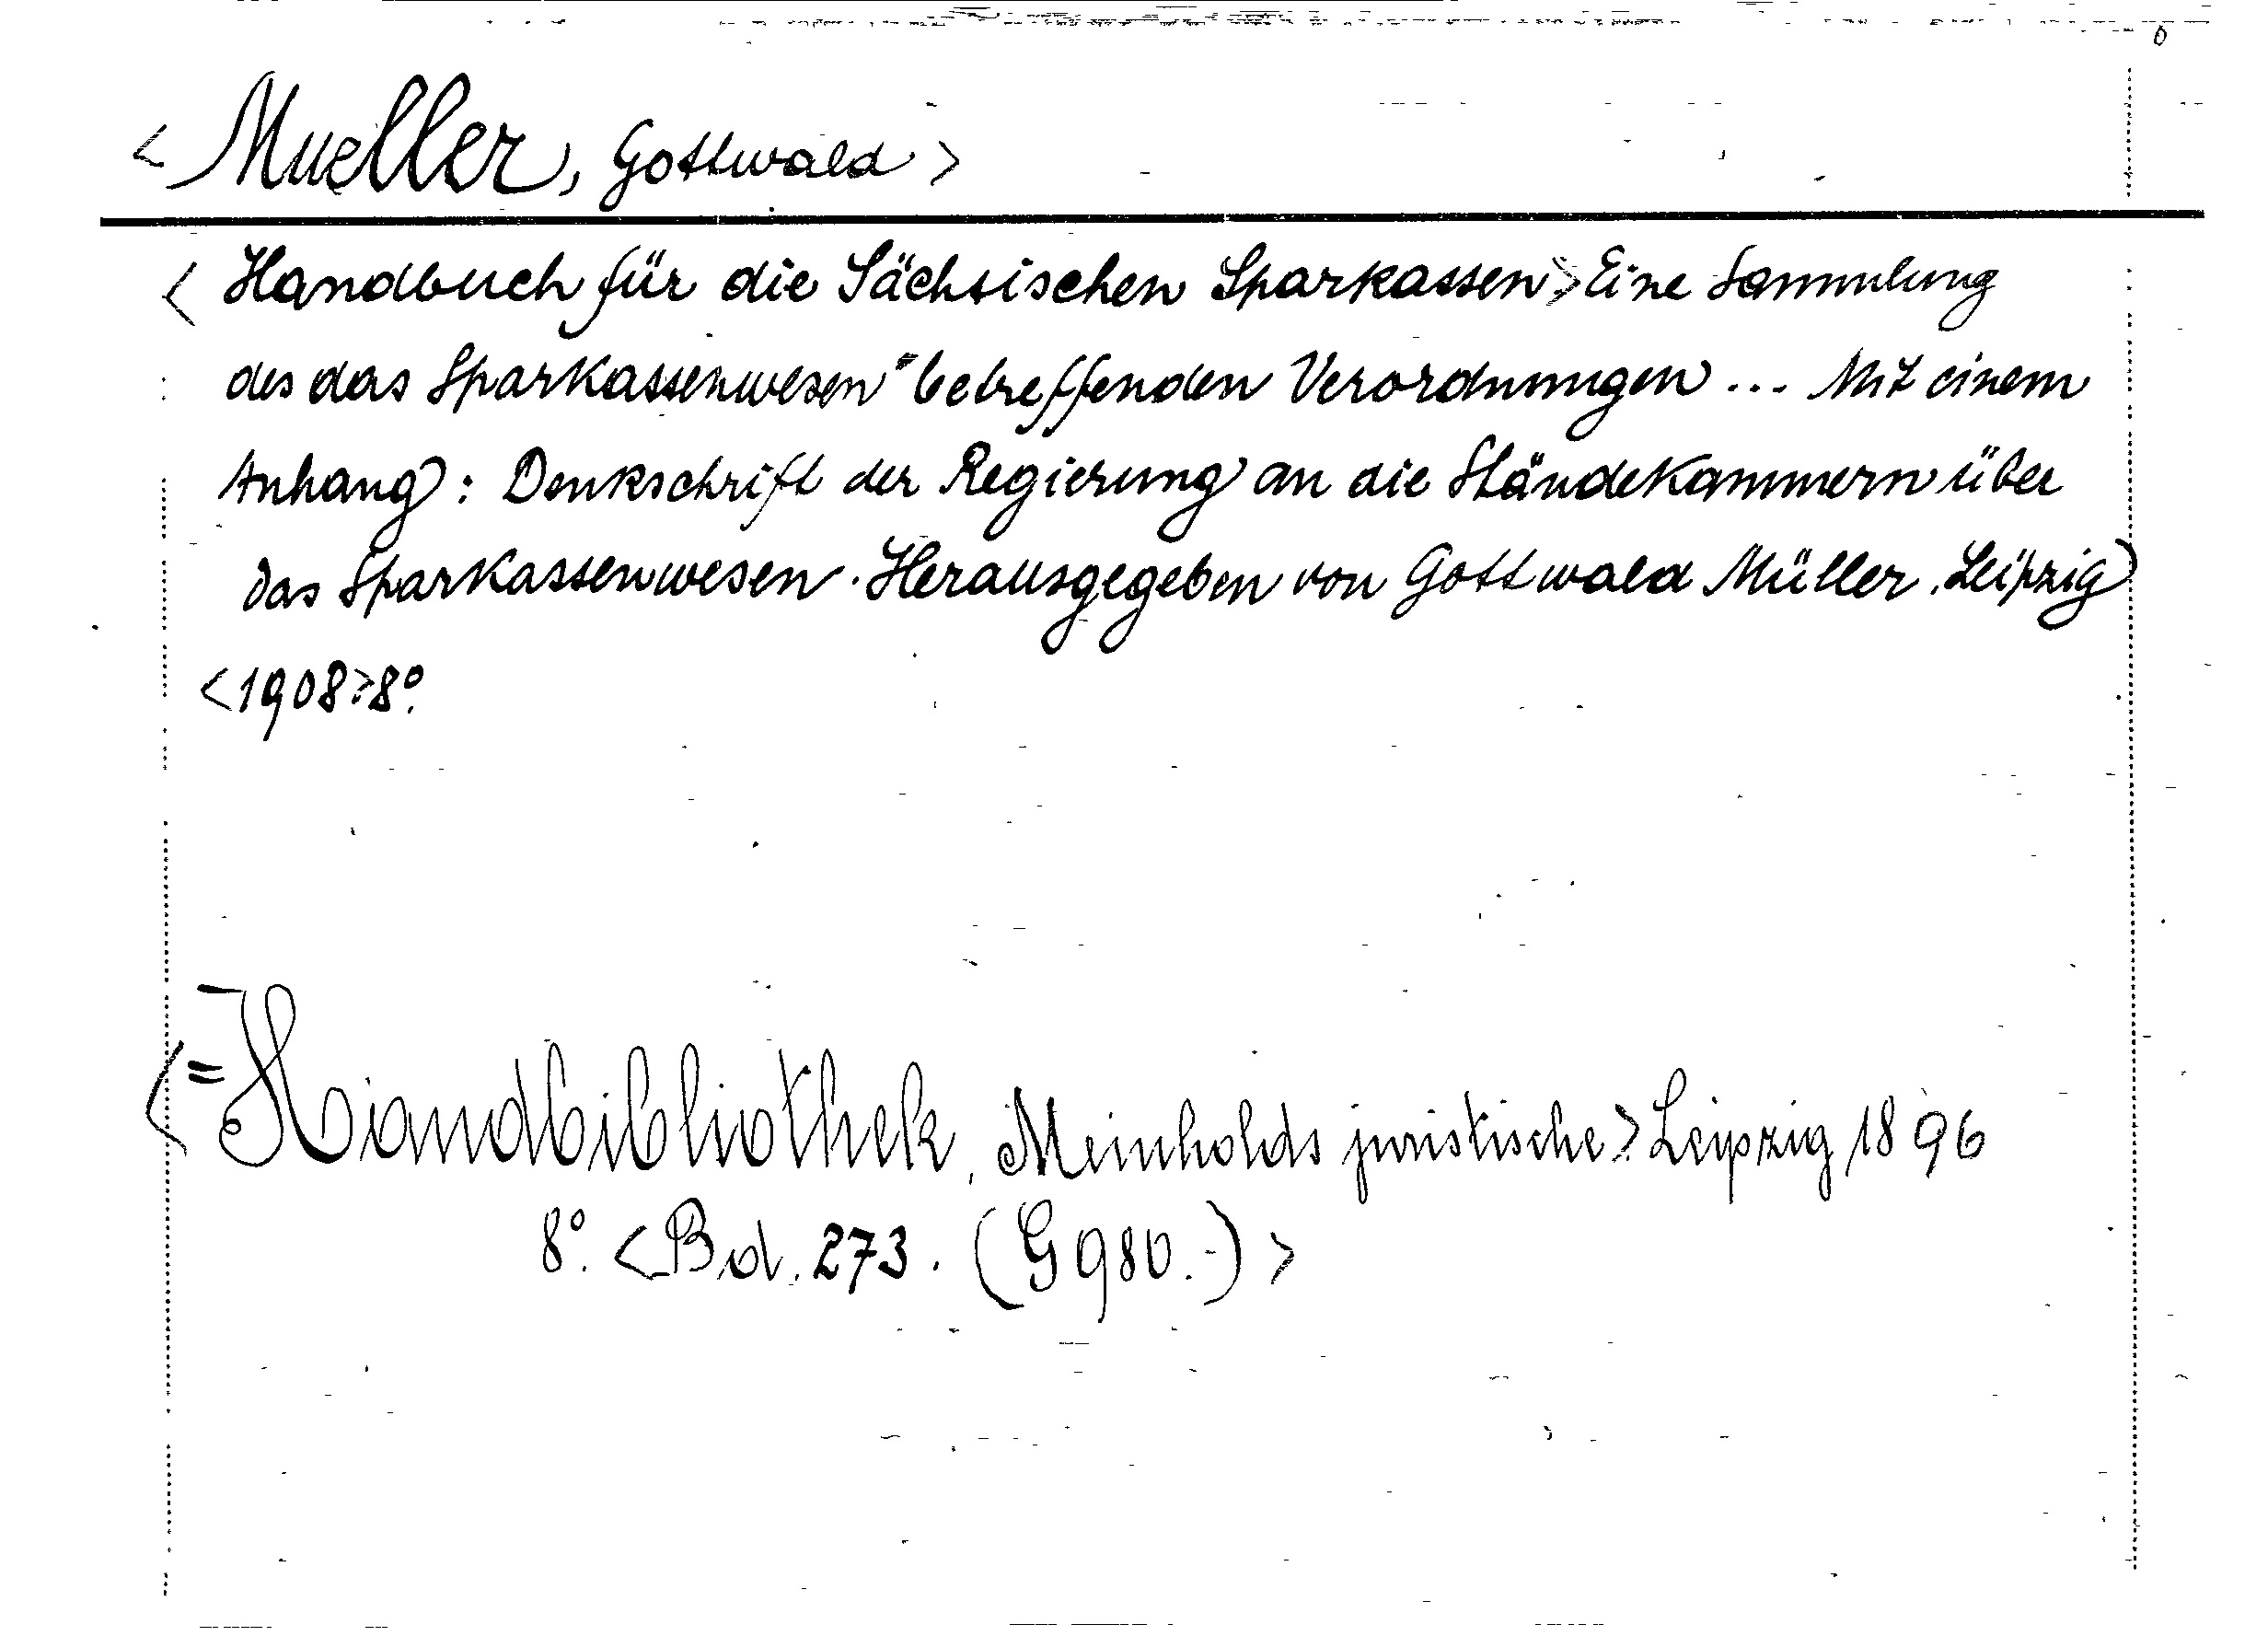 < Mueller, Gottwald >
< Handbuch für die Sächsischen Sparkassen > Eine Sammlung
des das Sparkassenwesen betreffenden Verordnungen ... Mit einem
Anhang: Denkschrift der Regierung an die Ständekammern über
das Sparkassenwesen. Herausgegeben von Gottwald Müller. Leipzig
<1908> 8°.
<= Handbibliothek, Meinholds juristische> Leipzig 1896
8°. <Bd. 273. (G 980.-)>